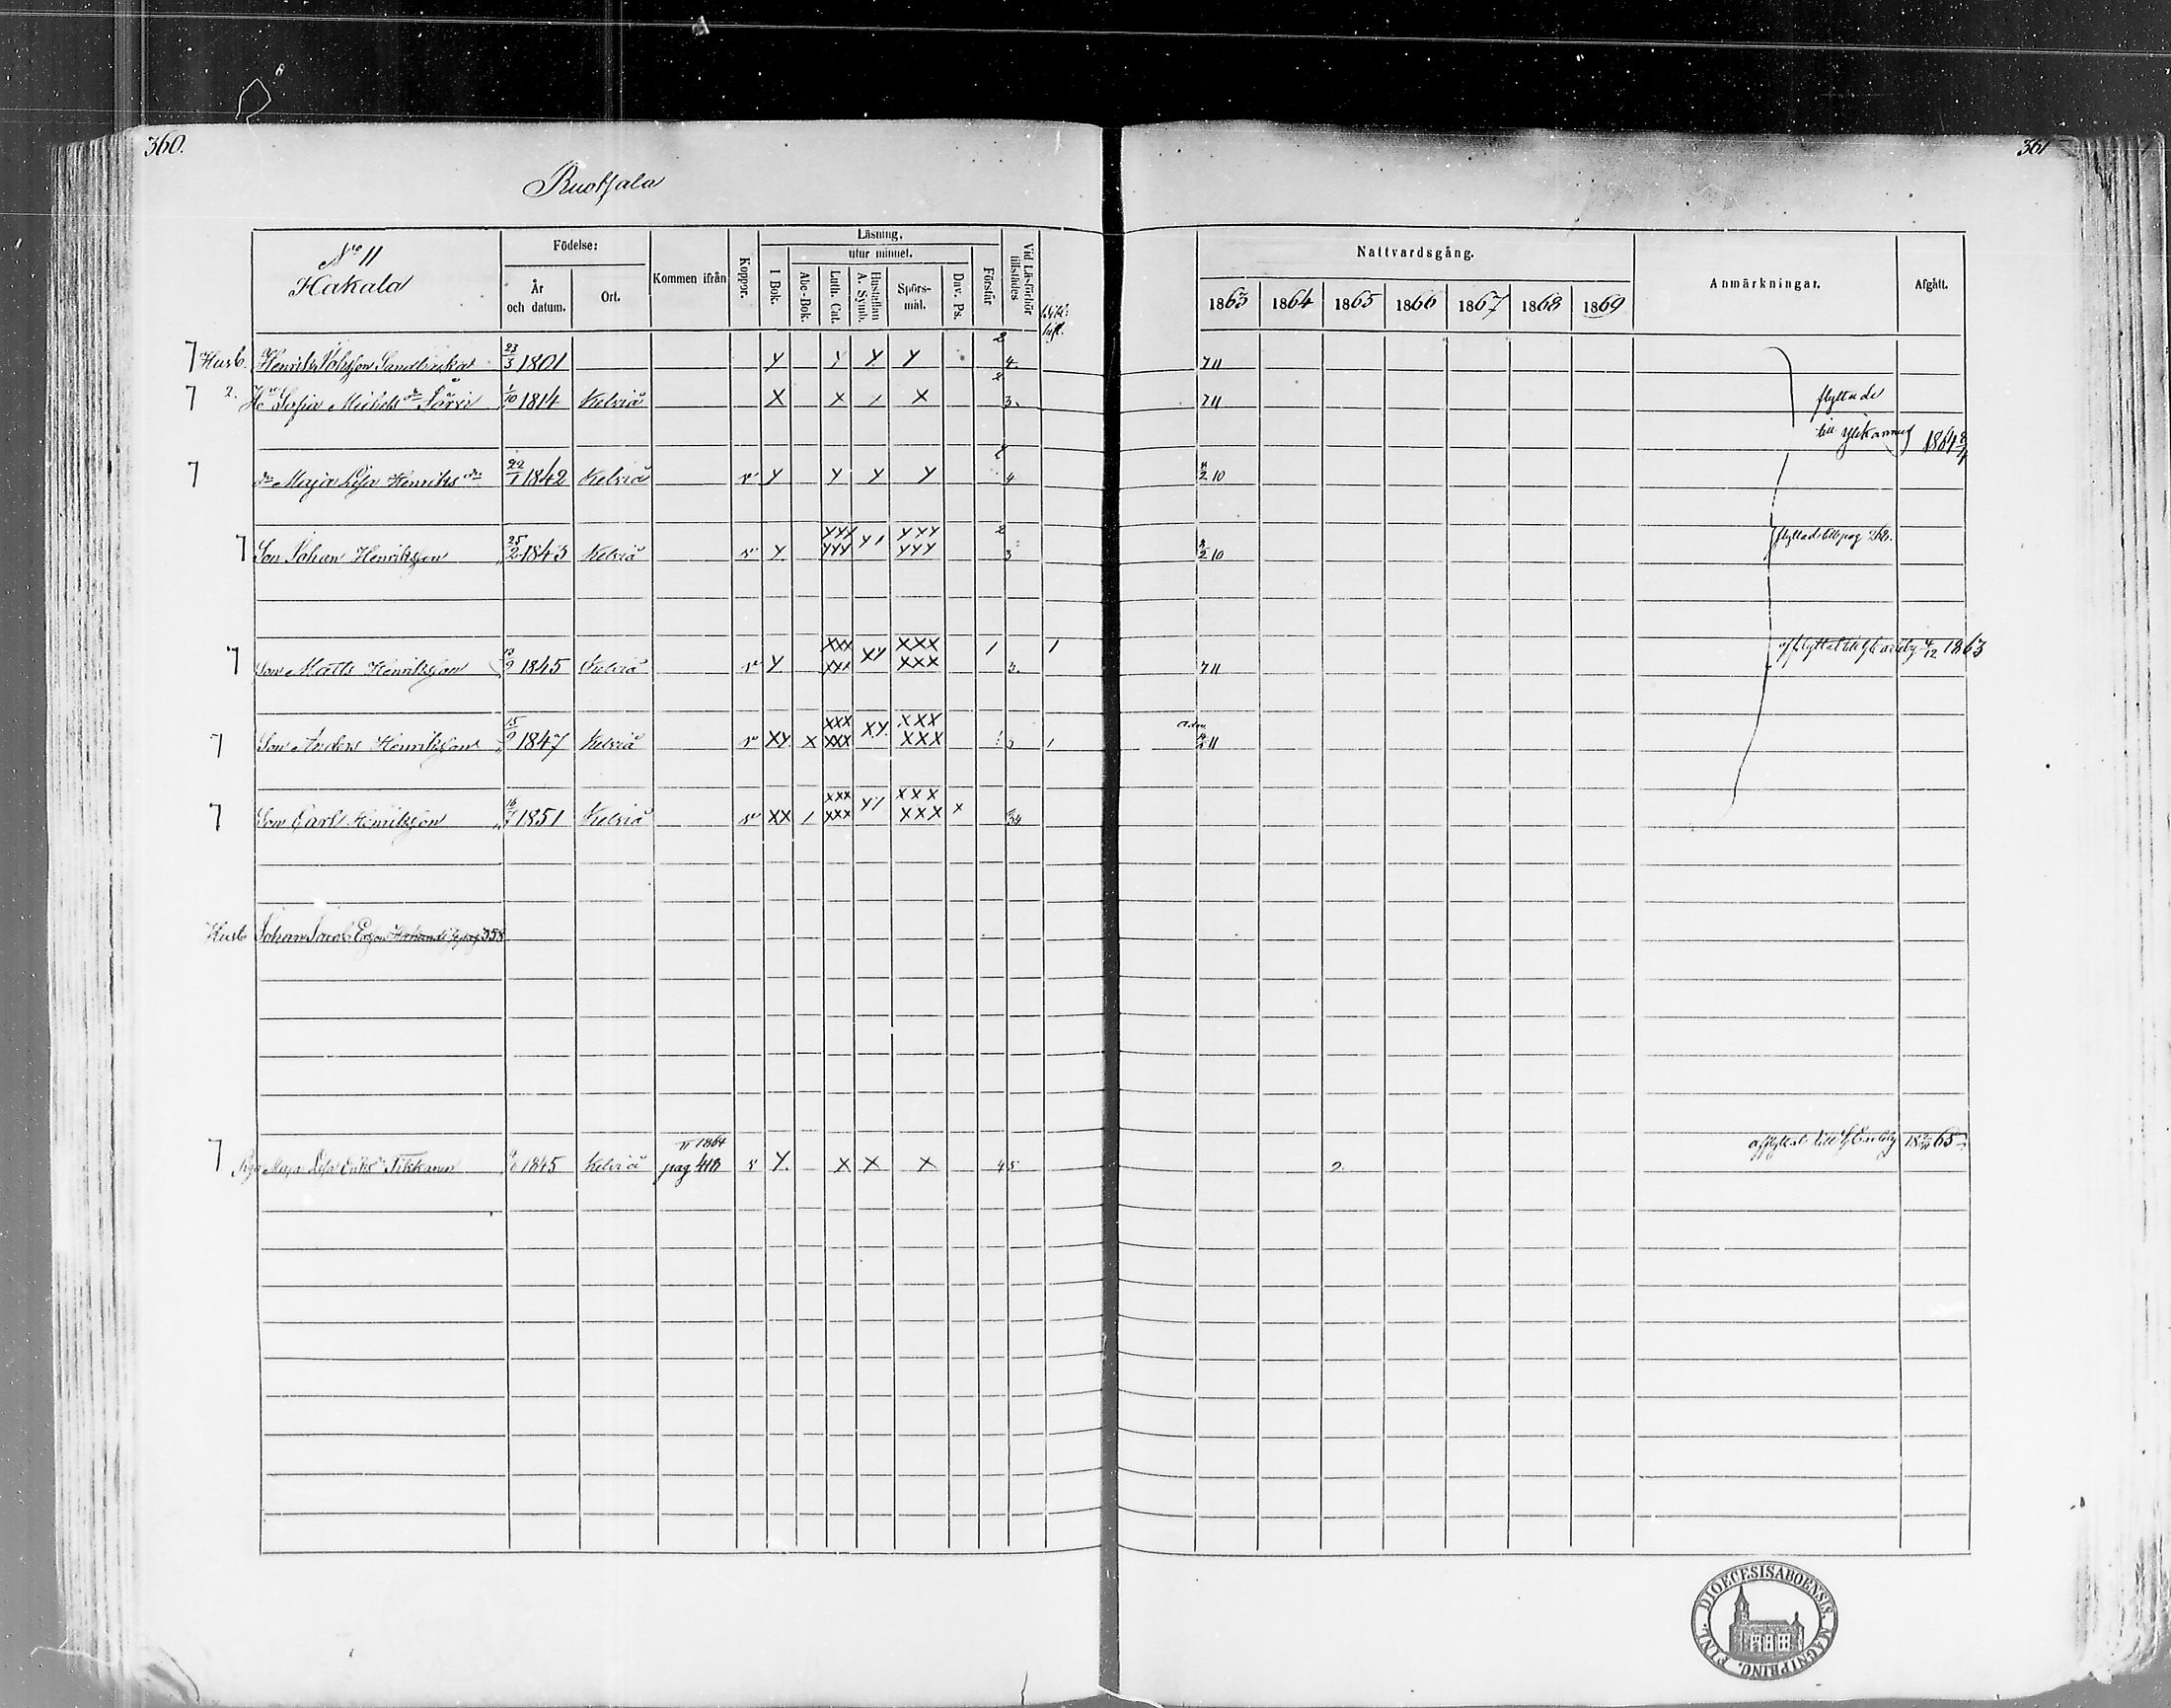 360.
361
Ruotsala
No 11
Hakala
Födelse:
År och datum.
Ort.
Kommen ifrån
Koppor.
Läsning.
utur minnet.
I Bok.
Abc-Bok.
Luth. Cat.
Hustaflan A. Symb.
Spörs-mål.
Dav. Ps.
Förstår
Vid Läsförhör tillstädes
Nattvardsgång.
1863 1864 1865 1866 1867 1868 1869
Anmärkningar.
Afgått.
7 Husb. Henrik 23/3 1801 y y y y 2 4. 7 11
7 2. Hu Sofia Michels dr Järvi 1/10 1814 Kelviä X X / X 2 3. 7 11 flyttade
till 1864
7 dr Maja Lisa Henriks dr 22/1 1842 Kelviä v y y y y 4 2 10
7 Son Johan Henriksson 25/2 1843 Kelviä v y yyy yyy y/ yyy yyy 2 3 2 10 flyttade till pag 268.
7 Son Matts Henriksson 1845 Kelviä v y XXX XXX Xy XXX XXX / 3. / 7 11 afflyttat till G Carleby 4/12 1863
7 Son Anders Henriksson 15/9 1847 Kelviä v XY X XXX XXX XY XXX XXX / 11
7 Son Carl Henriksson 16 1851 Kelviä v XX / XXX XXX y/ XXX XXX x 34
Husb Johan Jacob pag 358
7 Pig Maja Lisa Eriks Tikkanen 1845 Kelviä 1864 pag 418 v y X X X 4 5 2. afflyttat till G Carleby 65
DIOECESIS ABOENSIS. MAGNI PRINC. FINL.